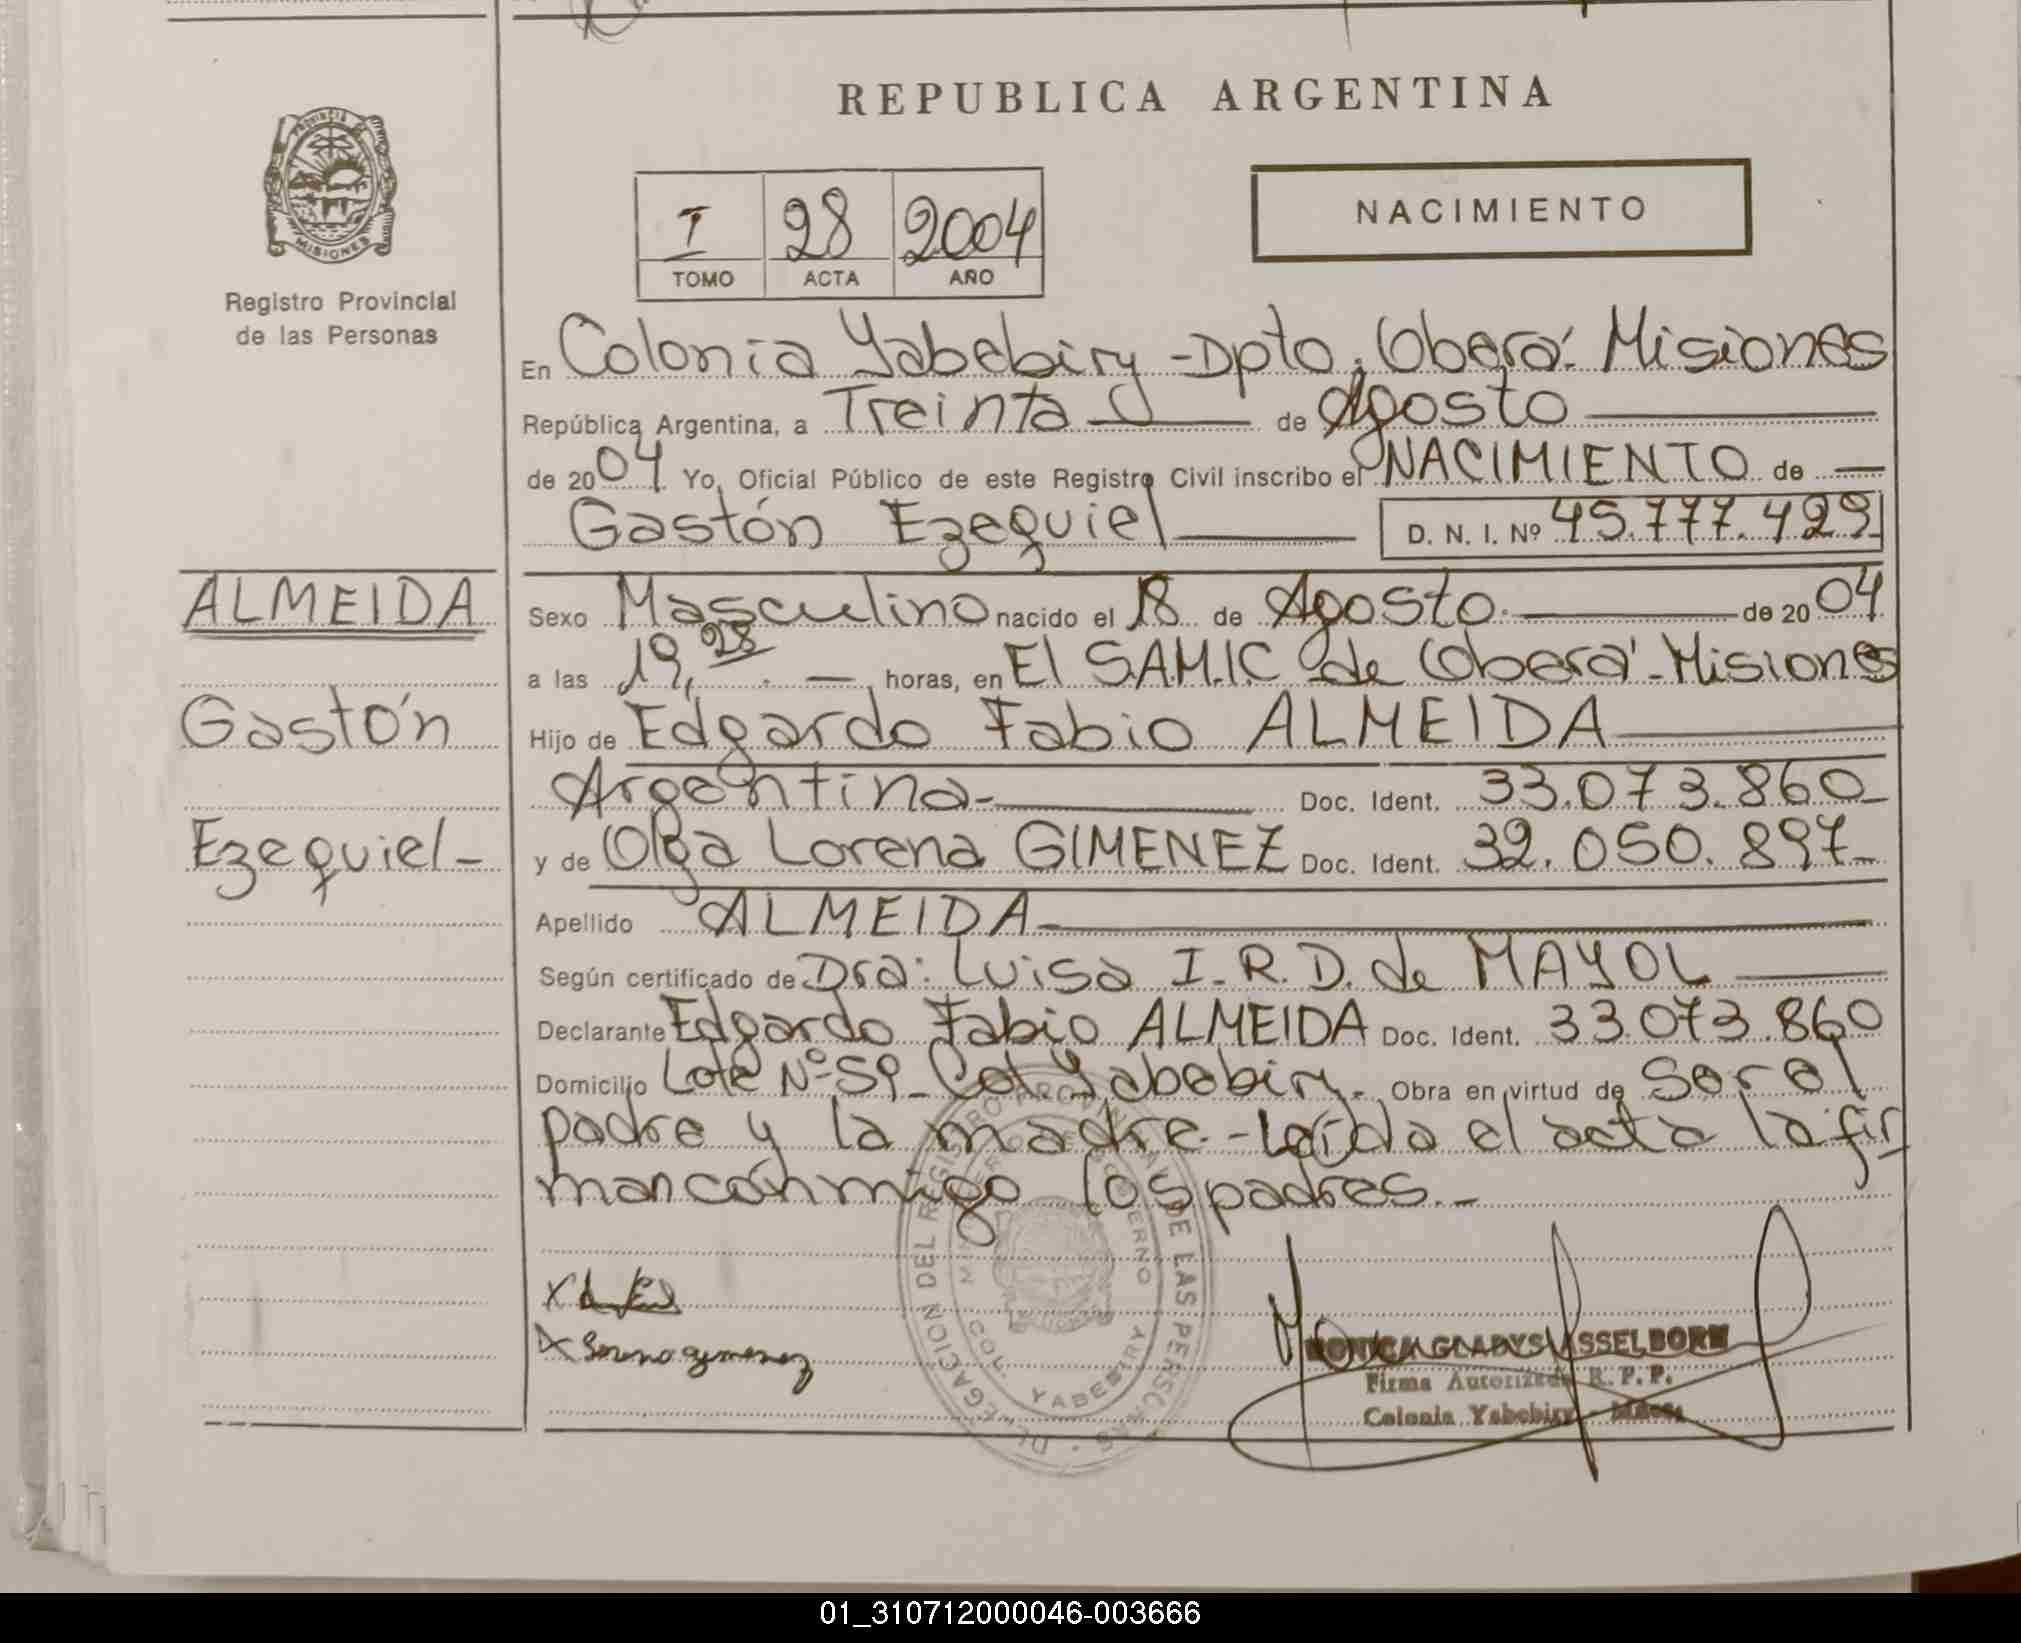 REPUBLICA ARGENTINA
PROVINCIA DE
MISIONES
Registro Provincial
de las Personas
I 28 2004
TOMO ACTA AÑO
NACIMIENTO
En Colonia Yabebiry - Dpto. Oberá - Misiones
República Argentina, a Treinta de Agosto
de 2004 Yo, Oficial Público de este Registro Civil inscribo el NACIMIENTO de
Gastón Ezequiel D. N. I. Nº 45.777.429
ALMEIDA
Gastón
Ezequiel-
Sexo Masculino nacido el 18 de Agosto. de 2004
a las 19,28 horas, en El S.A.M.I.C de Oberá - Misiones
Hijo de Edgardo Fabio ALMEIDA
Argentina- Doc. Ident. 33.073.860-
y de Olga Lorena GIMENEZ Doc. Ident. 32.050.897-
Apellido ALMEIDA-
Según certificado de Dra: Luisa I. R. D. de MAYOL
Declarante Edgardo Fabio ALMEIDA Doc. Ident. 33.073.860
Domicilio Lote Nº 59 - Col Yabebiry. Obra en virtud de Ser el
padre y la madre. - Leída el acta la fir
man conmigo los padres. -
DELEGACION DEL REGISTRO PROVINCIAL DE LAS PERSONAS
COL. YABEBIRY
x
x Lorena gimenez
MONICA GLADYS USSELBORN
Firma Autorizada R. P. P.
Colonia Yabebiry - Mnes.
01_310712000046-003666